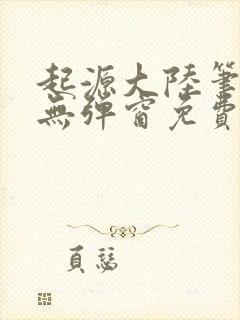 起源大陸筆
無彈窗免費
頁慧